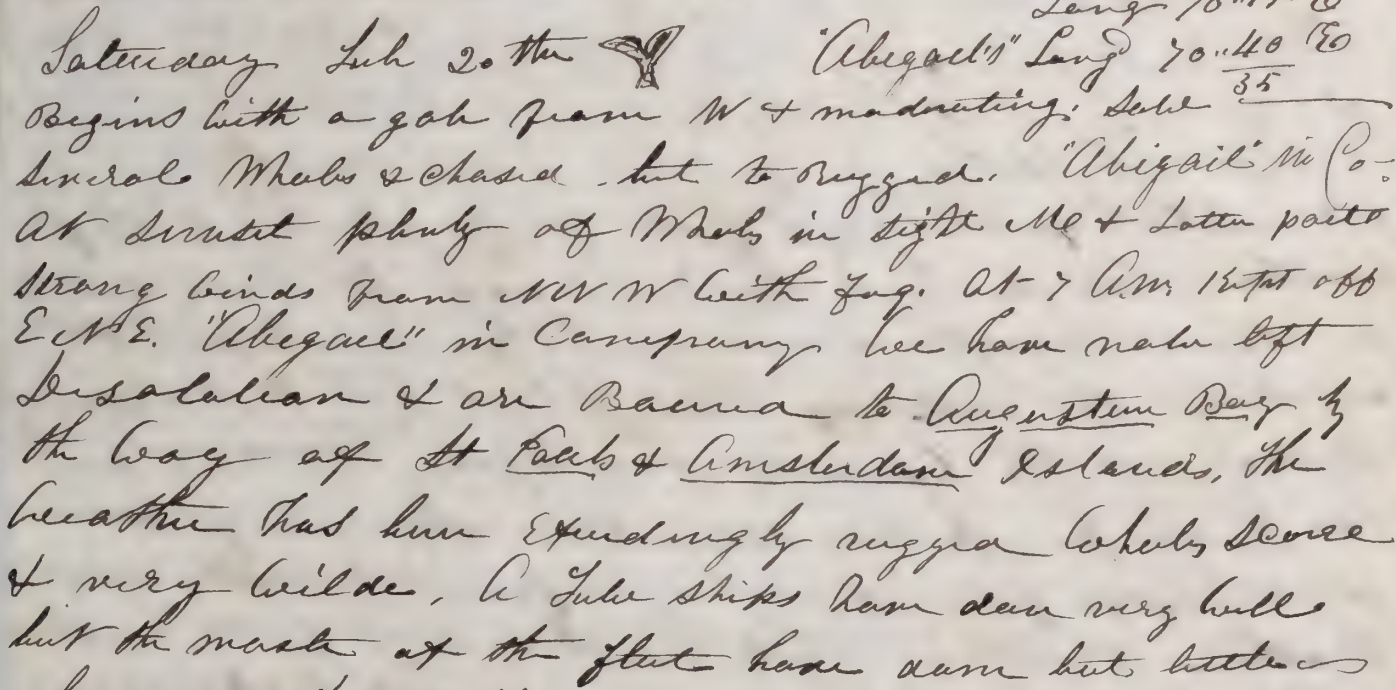 Long
Saturday Feb 20th "Abigael's" Longd 70..40 E
35
Begins with a gale from W & moderating. Saw
several Whales & chased but to Rugged. "Abigail" in Co-
At sunset plenty of Whales in sight Mc & Latter parts
strong winds from NNW with fog. At 7 A.M. Kept off
E N E. "Abigael" in Company We have now left
Desolation & are Bound to Augustin Bay by
the way of St Pauls & Amsterdam Islands, The
weather has been Exceedingly rugged Whales Scarce
& very wilde, A few ships have don very well
but the most of the fleet have done but little